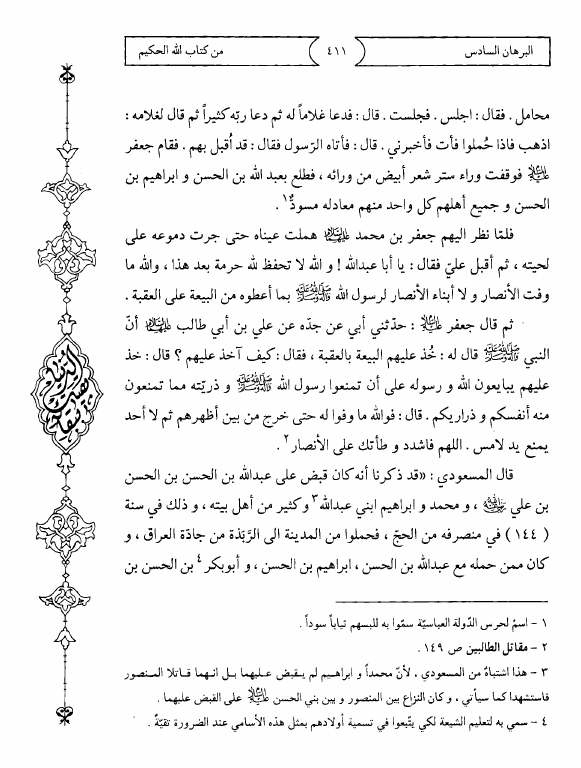 البرهان السادس
٤١١
من كتاب الله الحكيم
محامل . فقال : اجلس . فجلست . قال : فدعا غلاماً له ثم دعا ربّه كثيراً ثم قال لغلامه :
اذهب فاذا حُملوا فأت فأخبرني . قال : فأتاه الرّسول فقال : قد أقبل بهم . فقام جعفر
عليه السلام فوقفت وراء ستر شعر أبيض من ورائه ، فطلع بعبد الله بن الحسن و ابراهيم بن
الحسن و جميع أهلهم كل واحد منهم معادله مسودٌ١ .
فلمّا نظر اليهم جعفر بن محمد عليهما السلام هملت عيناه حتى جرت دموعه على
لحيته ، ثم أقبل عليّ فقال : يا أبا عبدالله ! و الله لا تحفظ لله حرمة بعد هذا ، والله ما
وفت الأنصار و لا أبناء الأنصار لرسول الله صلى الله عليه وآله وسلم بما أعطوه من البيعة على العقبة .
ثم قال جعفر عليه السلام : حدّثني أبي عن جدّه عن علي بن أبي طالب عليهما السلام أنّ
النبي صلى الله عليه وآله وسلم قال له : خُذ عليهم البيعة بالعقبة ، فقال : كيف آخذ عليهم ؟ قال : خذ
عليهم يبايعون الله و رسوله على أن تمنعوا رسول الله صلى الله عليه وآله وسلم و ذريّته مما تمنعون
منه أنفسكم و ذراريكم . قال : فوالله ما وفوا له حتى خرج من بين أظهرهم ثم لا أحد
يمنع يد لامس . اللهم فاشدد و طأتك على الأنصار٢ .
قال المسعودي : «قد ذكرنا أنه كان قبض على عبدالله بن الحسن بن الحسن
بن علي ، و محمد و ابراهيم ابني عبدالله٣ و كثير من أهل بيته ، و ذلك في سنة
( ١٤٤ ) في منصرفه من الحجّ ، فحملوا من المدينة الى الرَّبَذة من جادّة العراق ، و
كان ممن حمله مع عبدالله بن الحسن ، ابراهيم بن الحسن ، و أبوبكر٤ بن الحسن بن
١ - اسمٌ لحرس الدّولة العباسيّة سمّوا به للبسهم ثياباً سوداً .
٢ - مقاتل الطالبين ص ١٤٩ .
٣ - هذا اشتباهٌ من المسعودي ، لأنّ محمداً و ابراهيم لم يقبض عليهما بل انهما قاتلا المنصور
فاستشهدا كما سيأتي ، و كان النزاع بين المنصور و بين بني الحسن عليه السلام على القبض عليهما .
٤ - سمي به لتعليم الشيعة لكي يتّبعوا في تسمية أولادهم بمثل هذه الأسامي عند الضرورة تقيّةً .